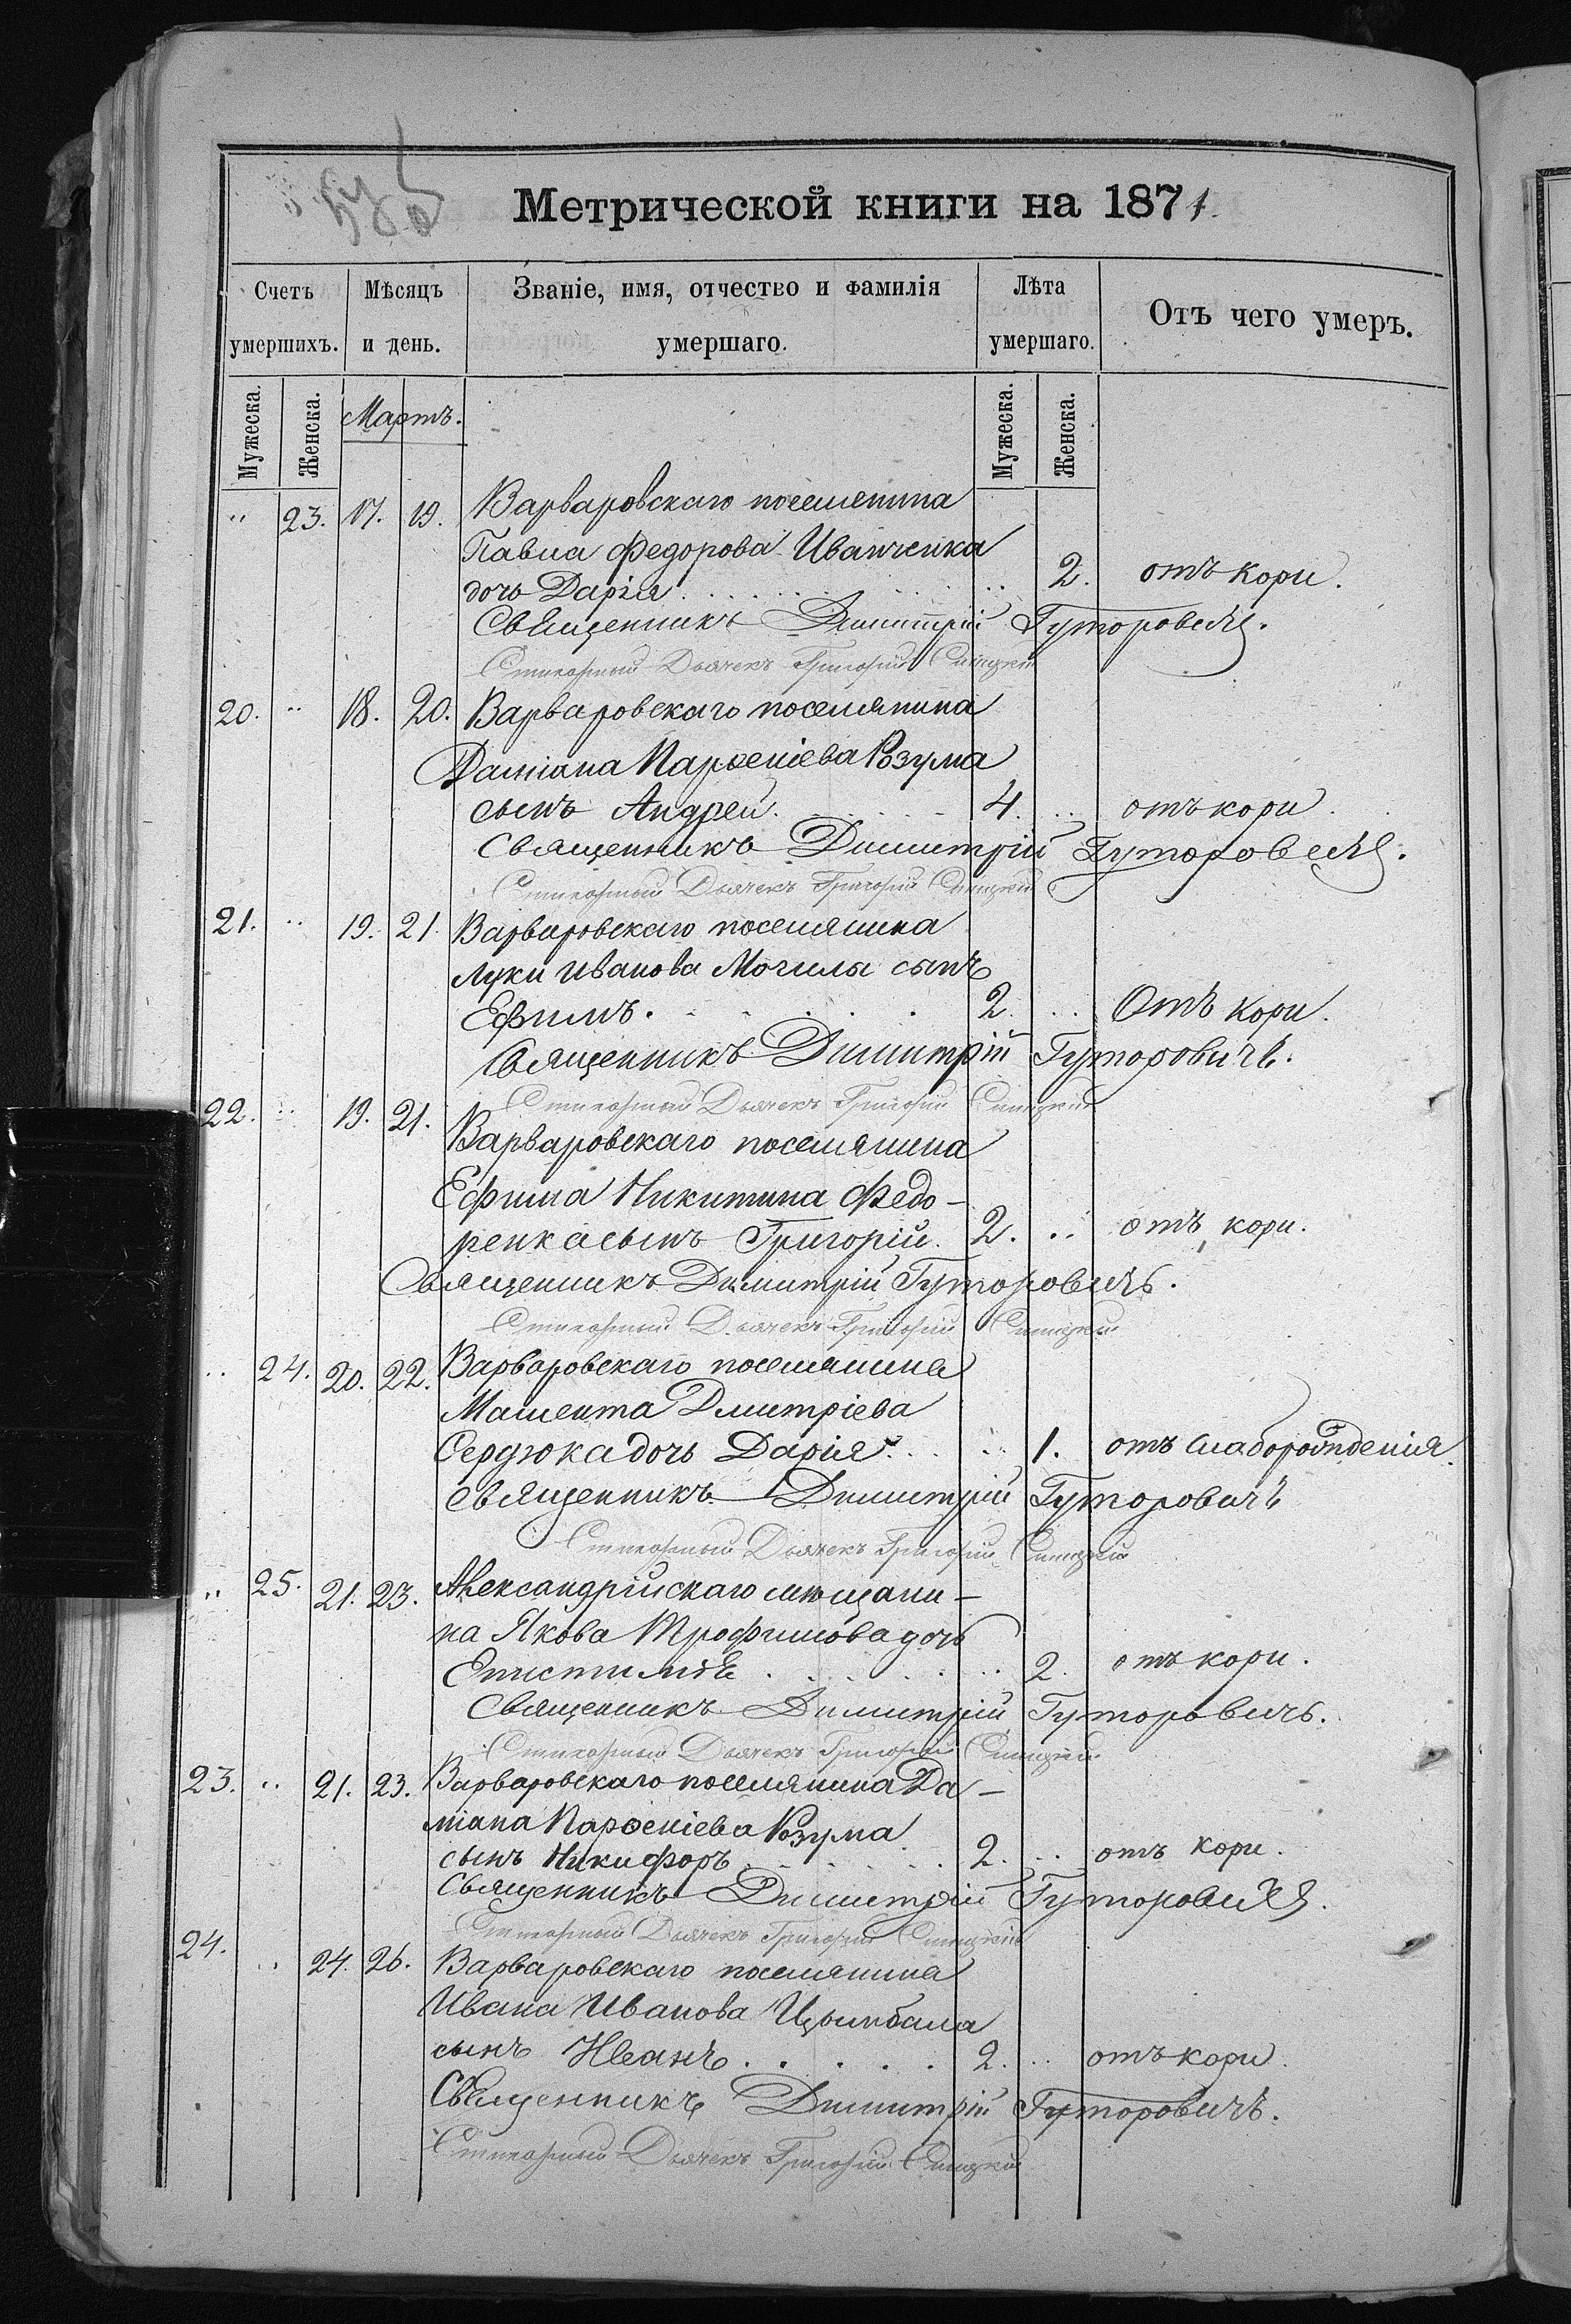 Метрической книги на 1871.
Счетъ умершихъ.
Мѣсяцъ и день.
Званіе, имя, отчество и фамилія умершаго.
Лѣта умершаго.
Отъ чего умеръ.
Мужеска.
Женска.
Мартъ.
Мужеска.
Женска.
" 23. 17. 19. Варваровскаго поселянина
Павла Федорова Иванченка
дочь Дарія . . . 2. отъ кори.
Священникъ Димитрій Гуторовичъ.
Стихарный Дьячекъ Григорій
20. " 18. 20. Варваровскаго поселянина
Даміана Парѳеніева Розума
сынъ Андрей. 4. .. отъ кори.
Священникъ Димитрій Гуторовичъ.
Стихарный Дьячекъ Григорій
21. .. 19. 21. Варваровскаго поселянина
Луки Иванова Могилы сынъ
Ефимъ. 2. .. Отъ кори.
Священникъ Димитрій Гуторовичъ.
Стихарный Дьячекъ Григорій
22. .. 19. 21. Варваровскаго поселянина
Ефима Никитина Федо-
ренка сынъ Григорій. 2. .. отъ кори.
Священникъ Димитрій Гуторовичъ.
Стихарный Дьячекъ Григорій
.. 24. 20. 22. Варваровскаго поселянина
Мамента Дмитріева
Сердюка дочь Дарія. .. 1. отъ слаборожденія.
Священникъ Димитрій Гуторовичъ
Стихарный Дьячекъ Григорій
.. 25. 21. 23. Александрійскаго мѣщани-
на Якова Трофимова дочь
Епистимія .. 2. отъ кори.
Священникъ Димитрій Гуторовичъ.
Стихарный Дьячекъ Григорій
23. .. 21. 23. Варваровскаго поселянина Да-
міана Парѳеніева Розума
сынъ Никифоръ. 2. .. отъ кори.
Священникъ Димитрій Гуторовичъ.
Стихарный Дьячекъ Григорій
24. .. 24. 26. Варваровскаго поселянина
Ивана Иванова Цымбала
сынъ Иванъ. . . . . . 2. .. отъ кори.
Священникъ Димитрій Гуторовичъ.
Стихарный Дьячекъ Григорій